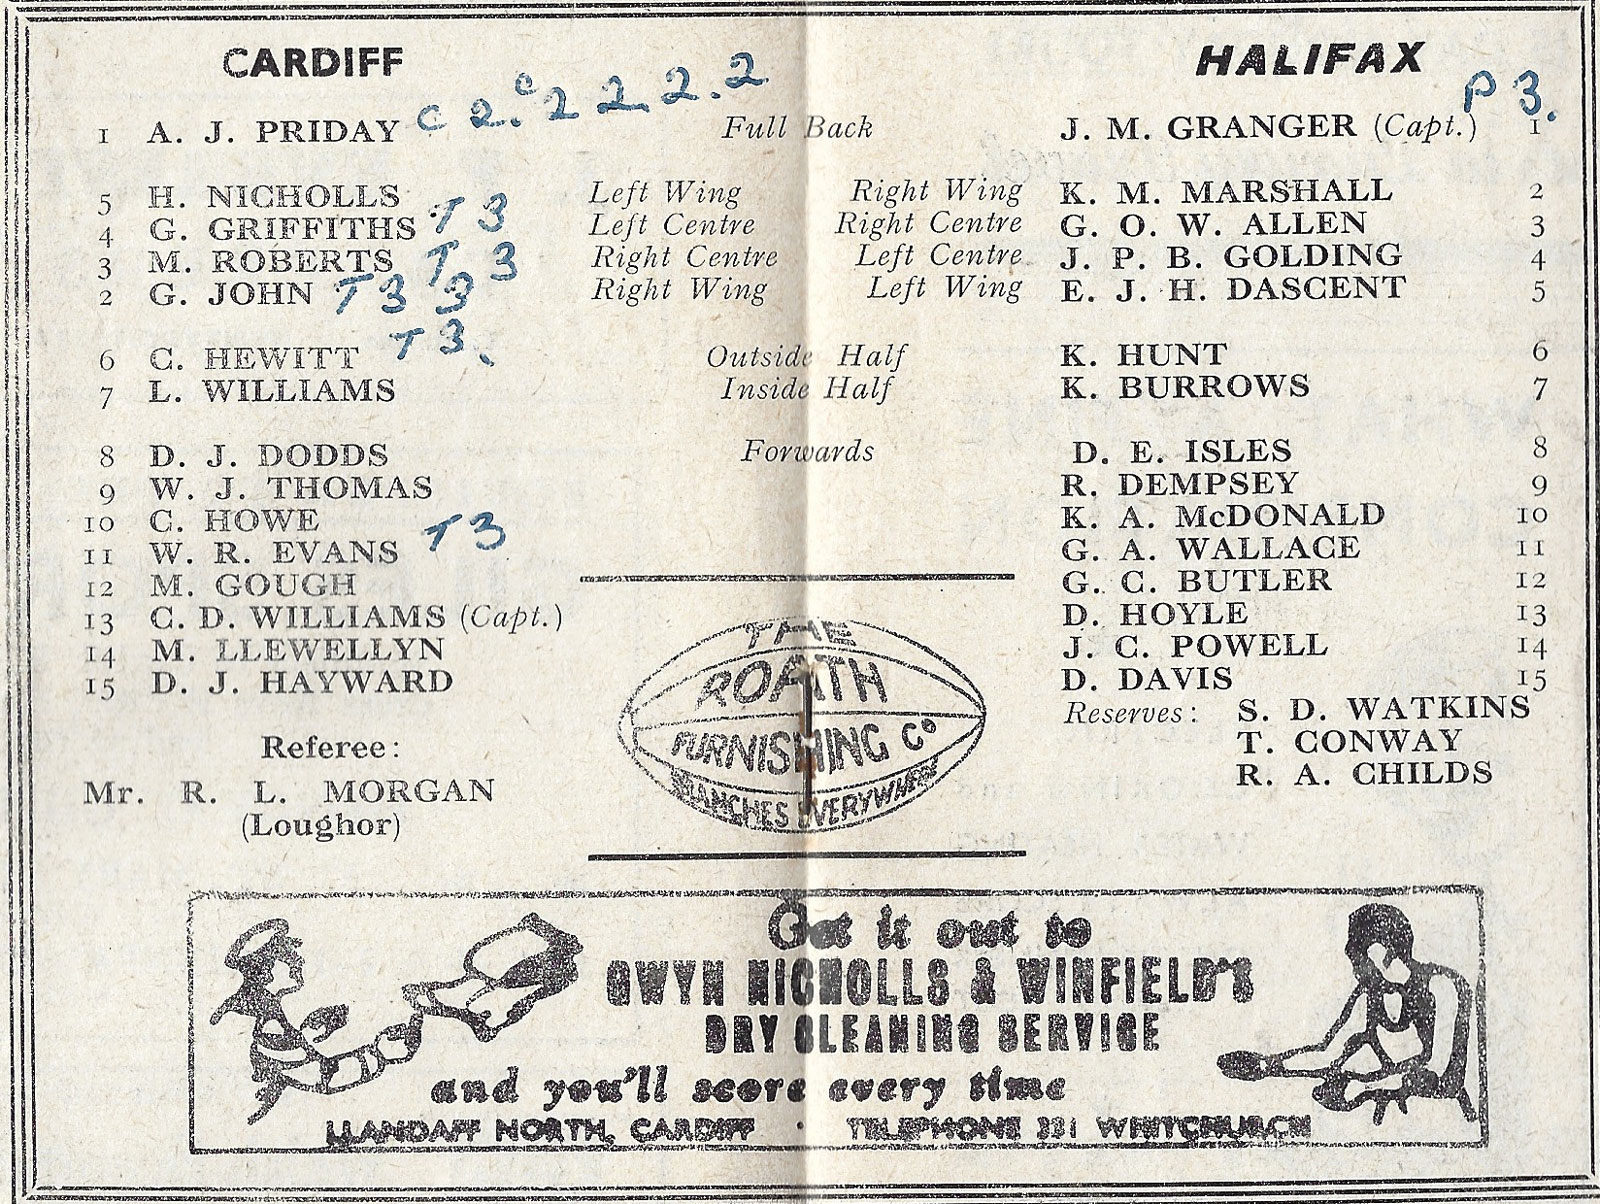 CARDIFF
HALIFAX
1 A. J. PRIDAY C 2. C 2 2. 2. 2 Full Back J. M. GRANGER (Capt.) P 3. 1
5 H. NICHOLLS Left Wing Right Wing K. M. MARSHALL 2
4 G. GRIFFITHS T 3 Left Centre Right Centre G. O. W. ALLEN 3
3 M. ROBERTS T 3 Right Centre Left Centre J. P. B. GOLDING 4
2 G. JOHN T 3 3 Right Wing Left Wing E. J. H. DASCENT 5
T 3.
6 C. HEWITT Outside Half K. HUNT 6
7 L. WILLIAMS Inside Half K. BURROWS 7
8 D. J. DODDS Forwards D. E. ISLES 8
9 W. J. THOMAS R. DEMPSEY 9
10 C. HOWE K. A. McDONALD 10
11 W. R. EVANS T 3 G. A. WALLACE 11
12 M. GOUGH G. C. BUTLER 12
13 C. D. WILLIAMS (Capt.) D. HOYLE 13
14 M. LLEWELLYN J. C. POWELL 14
15 D. J. HAYWARD D. DAVIS 15
Reserves: S. D. WATKINS
T. CONWAY
R. A. CHILDS
Referee:
Mr. R. L. MORGAN
(Loughor)
THE
ROATH
FURNISHING Co
BRANCHES EVERYWHERE
Get it out to
GWYN NICHOLLS & WINFIELD'S
DRY CLEANING SERVICE
and you'll score every time
LLANDAFF NORTH, CARDIFF · TELEPHONE 331 WHITCHURCH